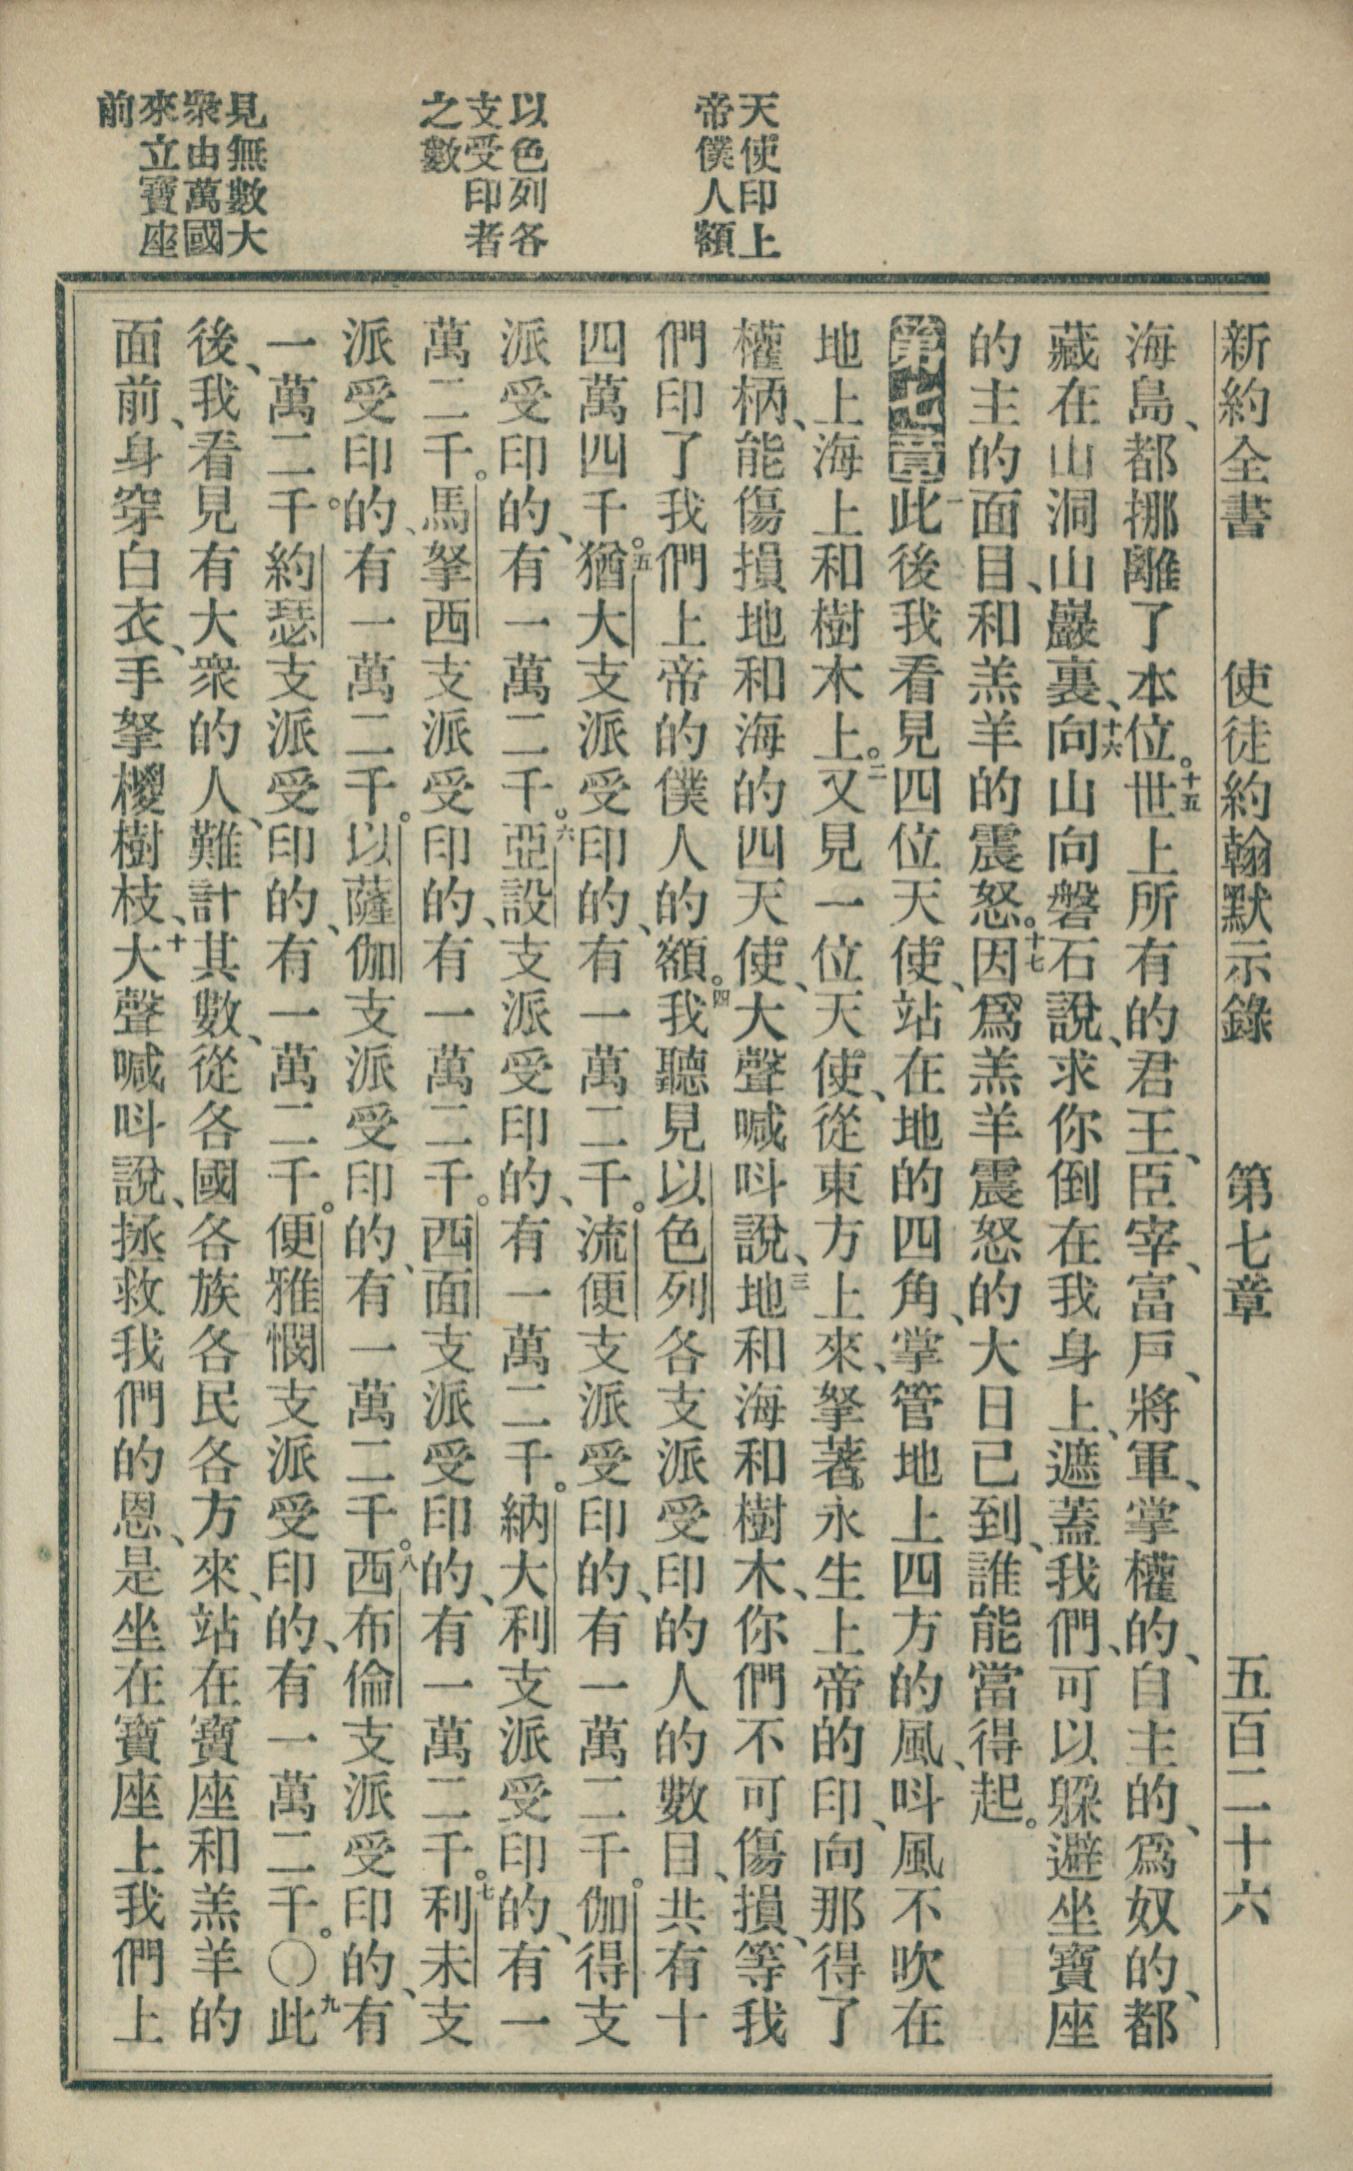 新約全書　使徒約翰默示錄　第七章　五百二十六
海島、都挪離了本位。十五世上所有的君王、臣宰、富戶、將軍、掌權的、自主的、爲奴的、都
藏在山洞山巖裏、十六向山向磐石說、求你倒在我身上、遮蓋我們、可以躱避坐寶座
的主的面目、和羔羊的震怒。十七因爲羔羊震怒的大日已到、誰能當得起。
第七章一此後我看見四位天使、站在地的四角、掌管地上四方的風、呌風不吹在
地上海上和樹木上。二又見一位天使、從東方上來、拏著永生上帝的印、向那得了
權柄、能傷損地和海的四天使、大聲喊呌說、三地和海和樹木、你們不可傷損、等我
們印了我們上帝的僕人的額。四我聽見以色列各支派受印的人的數目、共有十
四萬四千。五猶大支派受印的、有一萬二千。流便支派受印的、有一萬二千。伽得支
派受印的、有一萬二千。六亞設支派受印的、有一萬二千。納大利支派受印的、有一
萬二千。馬拏西支派受印的、有一萬二千。西面支派受印的、有一萬二千。七利未支
派受印的、有一萬二千。以薩伽支派受印的、有一萬二千。八西布倫支派受印的、有
一萬二千。約瑟支派受印的、有一萬二千。便雅憫支派受印的、有一萬二千。〇九此
後、我看見有大衆的人、難計其數、從各國各族各民各方來、站在寶座和羔羊的
面前、身穿白衣、手拏椶樹枝、十大聲喊呌說、拯救我們的恩、是坐在寶座上我們上
天使印上
帝僕人額
以色列各
支受印者
之數
見無數大
衆由萬國
來立寶座
前